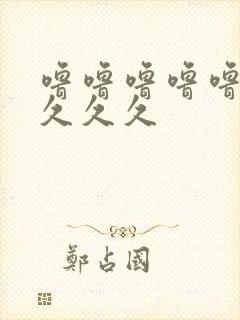 噜噜噜噜噜
久久久
鄭占國